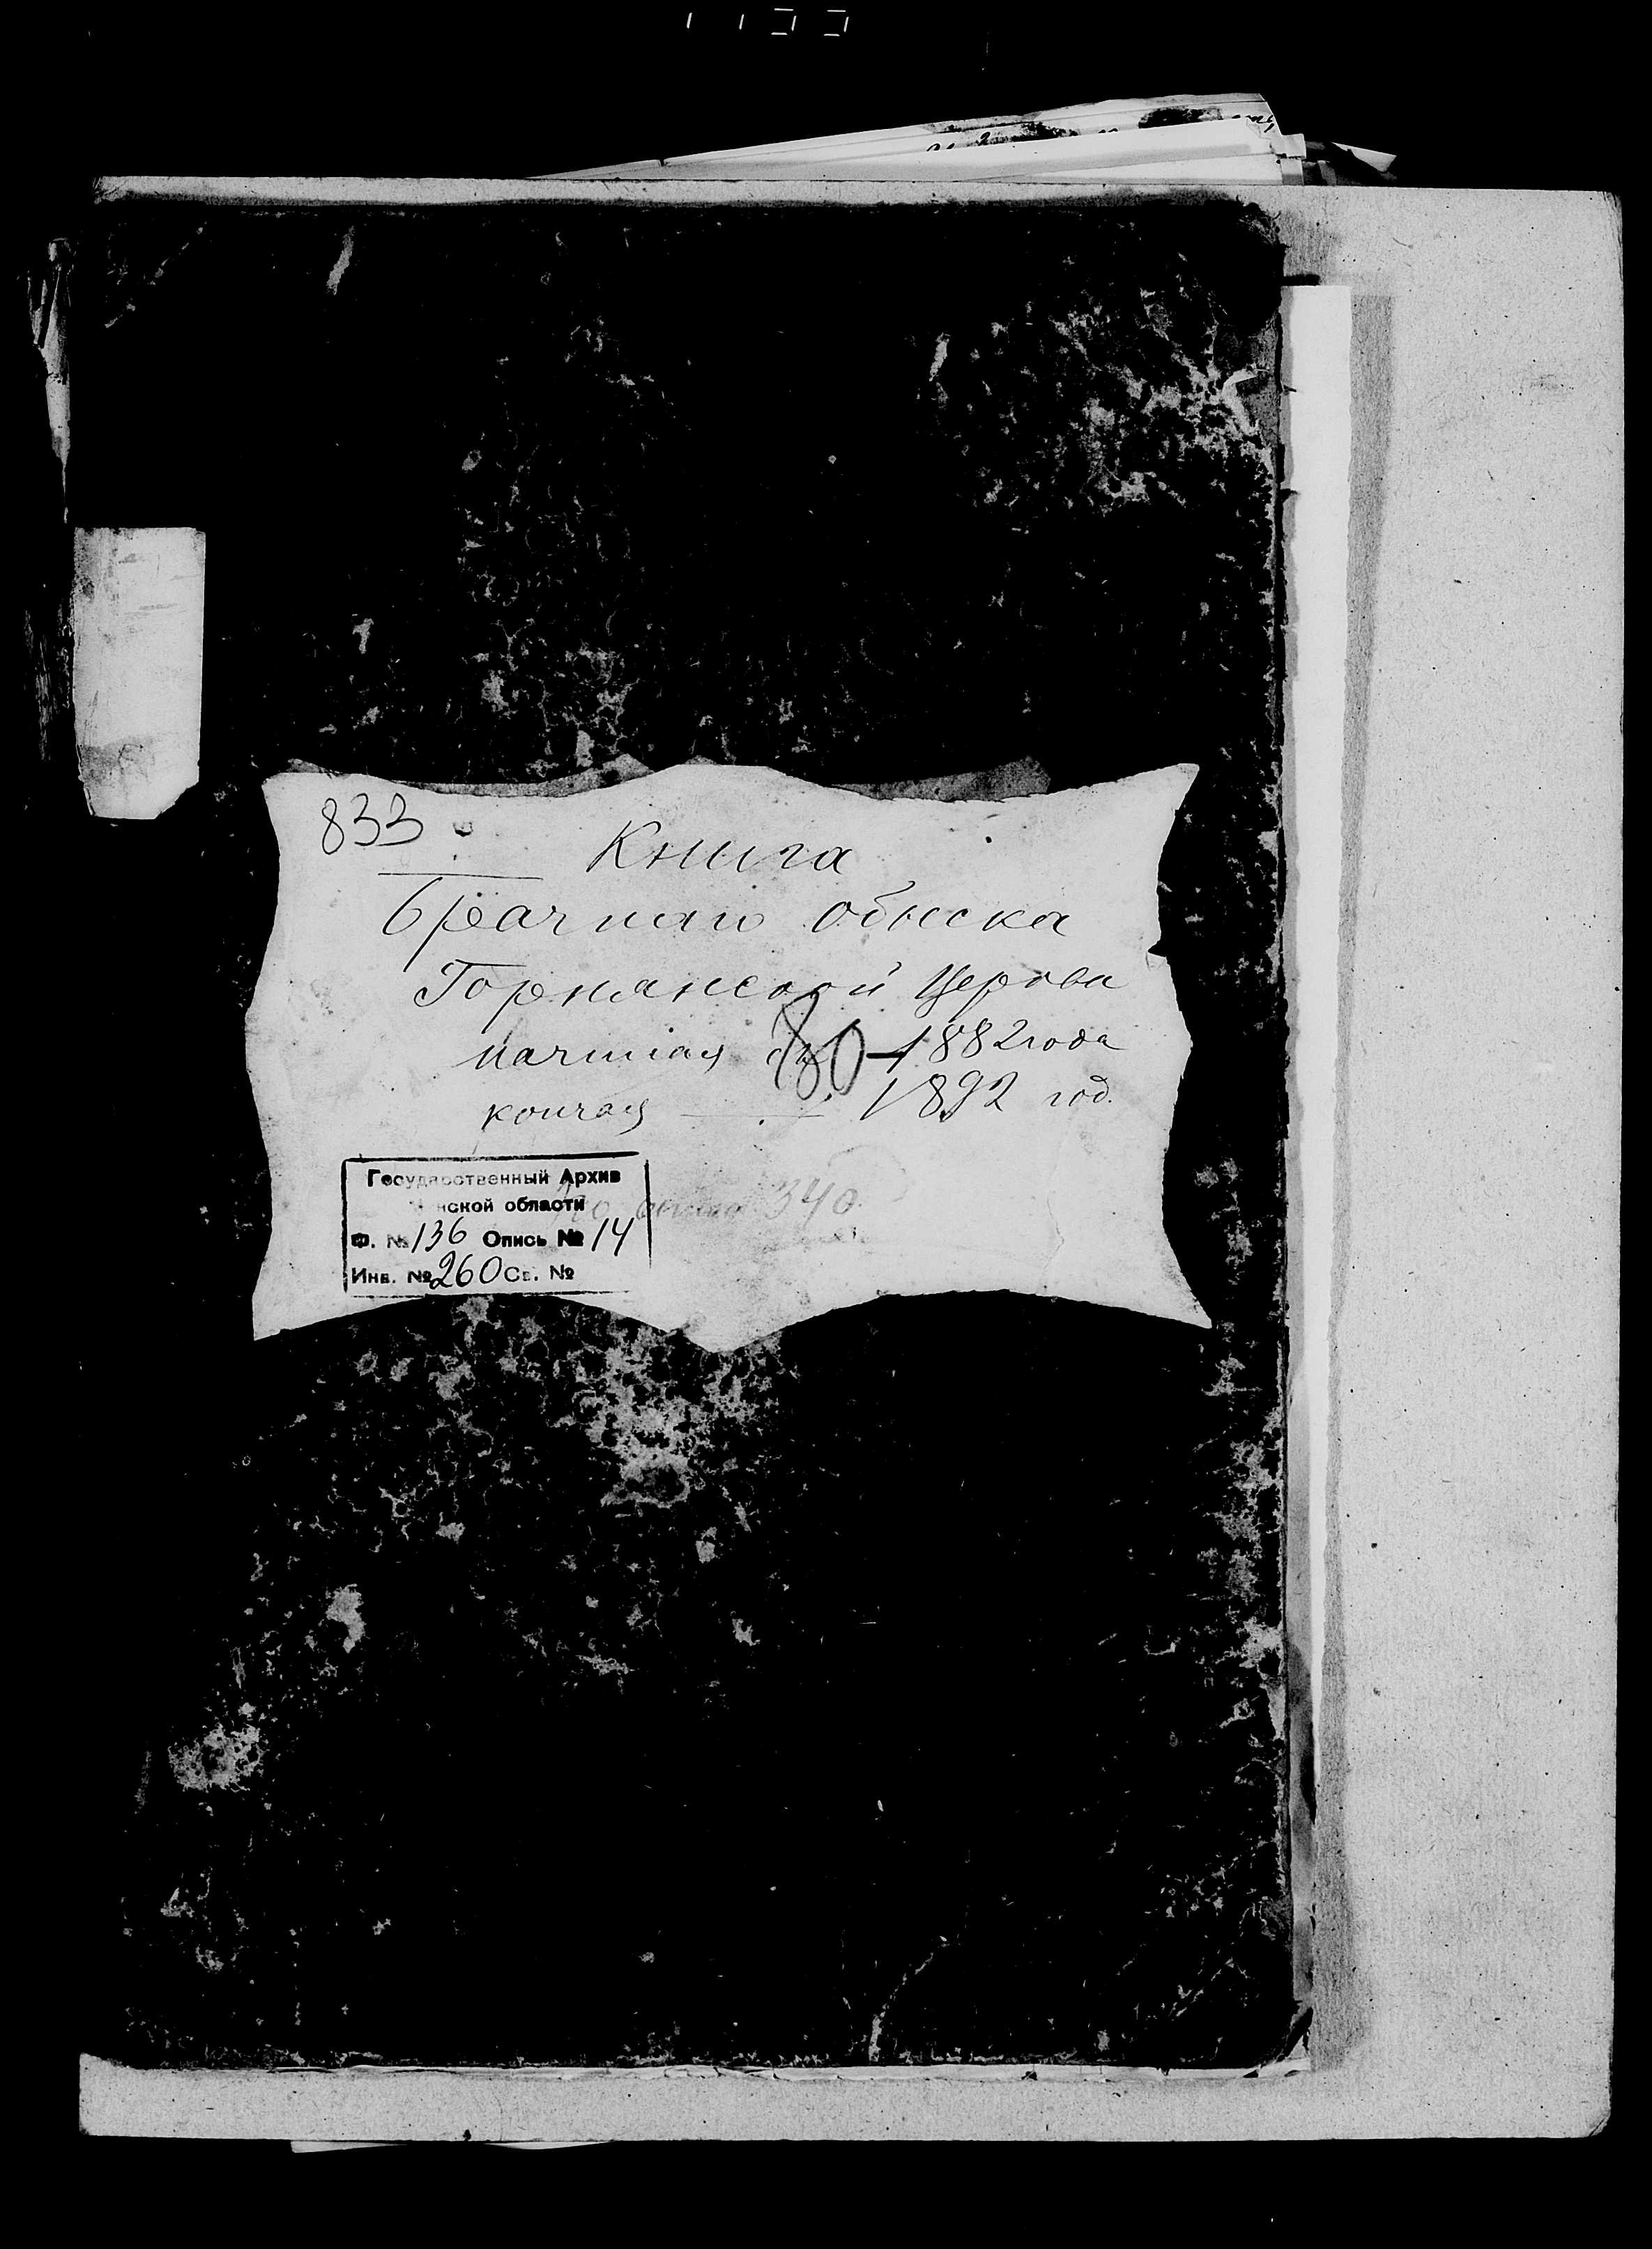 833
Книга
брачнаго обыска
Горнянской Церкви
начатая съ 1882 года
80
кончая 1892 год.
Государственный Архив
нской области
340
Ф. № 136 Опись № 14
Инв. № 260 Св. №